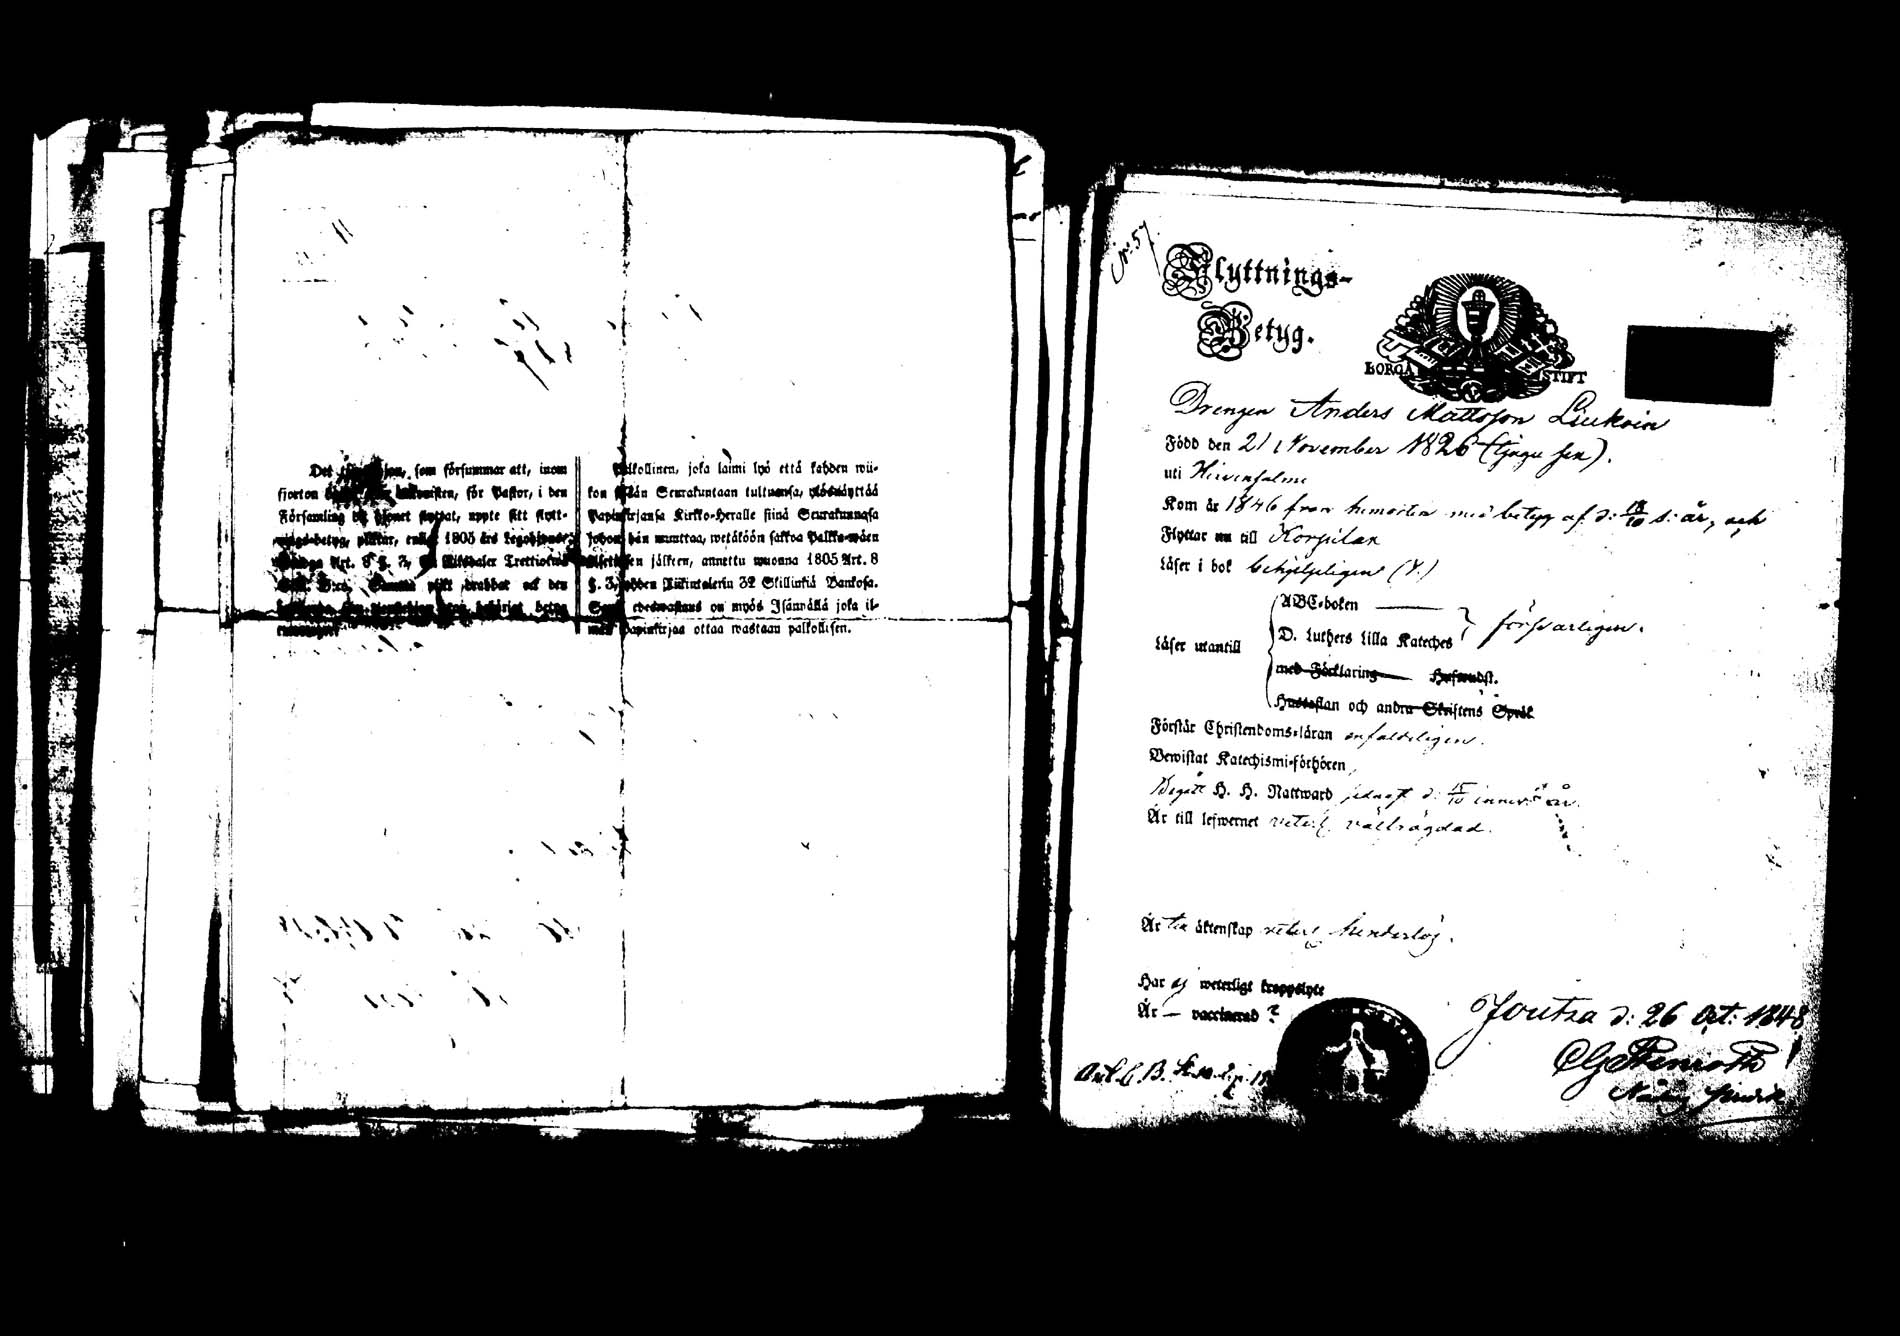 Det som försummar att, inom
fjorton ankomsten, för Pastor, i den
Församling dit hjonet flyttat, uppte sitt flytt-
nings-betyg, pliktar, enligt 1805 års Legohjons-
Stadga Art. 8 §. 3, Riksdaler Trettiotwå
Samma plikt drabbar ock den
betyg
Palkollinen, joka laimi lyö että kahden wii-
kon sisään Seurakuntaan tultuansa, ylösnäyttää
Papinkirjansa Kirkko-Herralle siinä Seurakunnasa
johon hän muuttaa, wetäköön sakkoa Palkka-wäen
Asetuksen jälkeen, annettu wuonna 1805 Art. 8
§. 3, kahden Riikintalerin 32 Skillinkiä Bankosa.
Sama edeswastaus on myös Isännällä joka il-
man Papinkirjaa ottaa wastaan palkollisen.
No 57
Flyttnings-
Betyg.
BORGÅ STIFT
Drengen Anders Mattsson Liukoin
Född den 21 November 1826 (tjugu sex).
uti Hirvensalmi
Kom år 1846 från hemorten med betyg af d: 18/10 s: år, och
Flyttar nu till Korpilax
Läser i bok behjelpligen (V.)
Läser utantill
ABC-boken
D. Luthers Lilla Kateches
försvarligen.
med Förklaring Hufwudst.
Hustaflan och andra Skriftens Språk
Förstår Christendoms-läran enfaldeligen.
Bewistat Katechismi-förhören
Begått H. H. Nattward senast d: 15/10 innev: år.
Är till lefwernet veterl. välfrägdad.
Är till äktenskap veterl. hinderlös.
Har ej weterligt kroppslyte
Är — vaccinerad ?
Joutsa d: 26 Oct: 1848
CG Stenroth